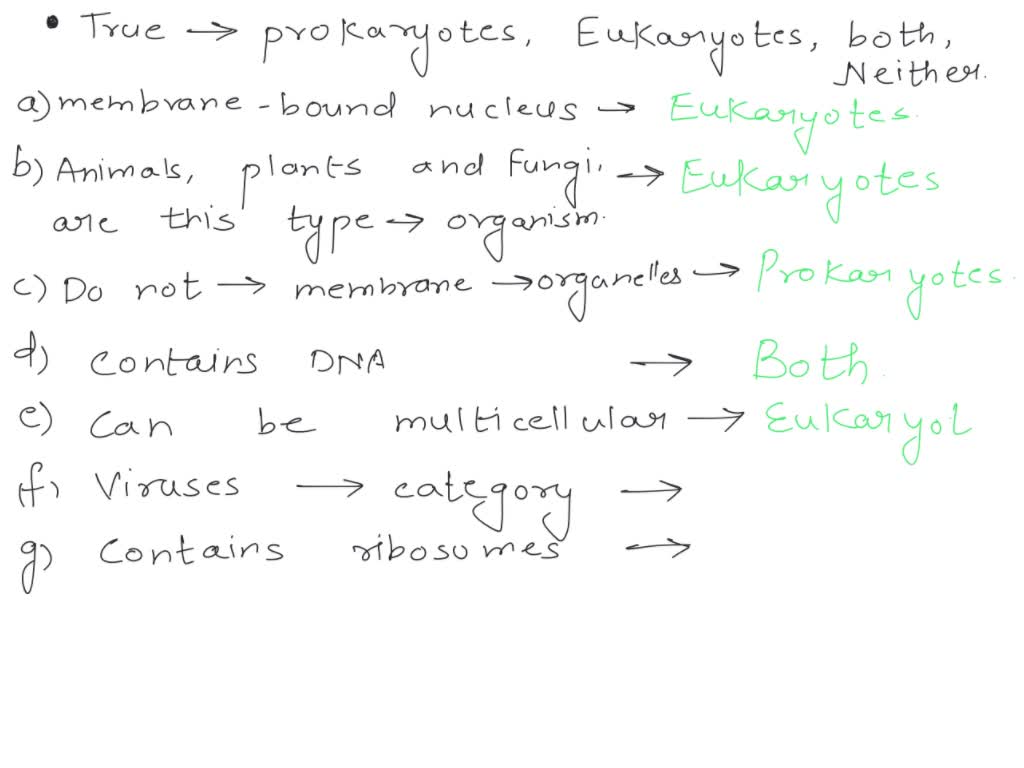 • True → prokaryotes, Eukaryotes, both,
Neither.
a) membrane-bound nucleus → Eukaryotes.
b) Animals, plants and Fungi, → Eukaryotes
are this type → organism.
c) Do not → membrane → organelles → Prokaryotes.
d) Contains DNA → Both.
e) Can be multicellular → Eukaryot
(f) Viruses → category →
g) Contains ribosomes →